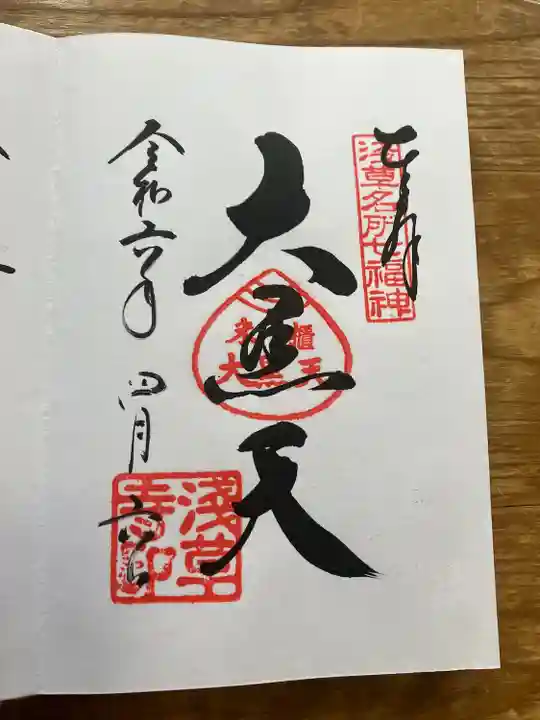 奉拝
浅草名所七福神
大黒天
米櫃
大黒天
令和六年四月六日
淺草寺印